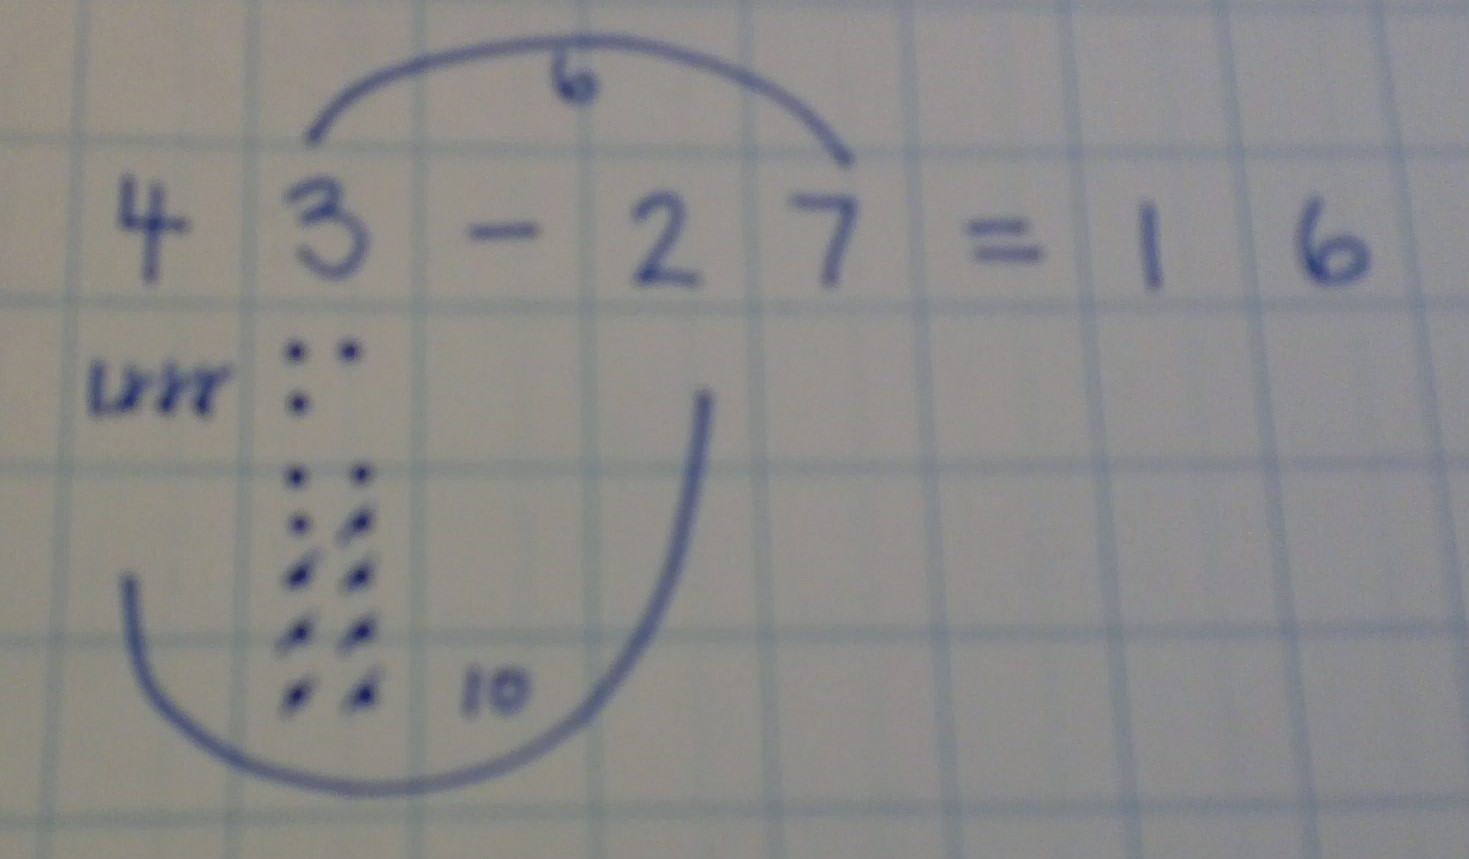 6
43-27=16
10